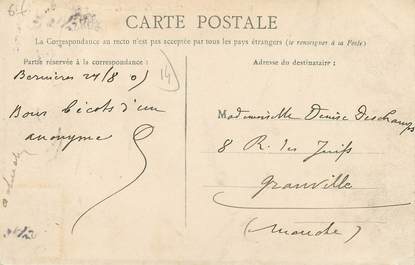 CARTE POSTALE
La Correspondance au recto n'est pas acceptée par tous les pays étrangers (se renseigner à la Poste)
Partie réservée à la correspondance :
Adresse du destinataire :
Bernières 24/8 0)
14
Bons bécots d'un
anonyme
Mademoiselle Denise Deschamps
8 R. les Juifs
Granville
(Manche)